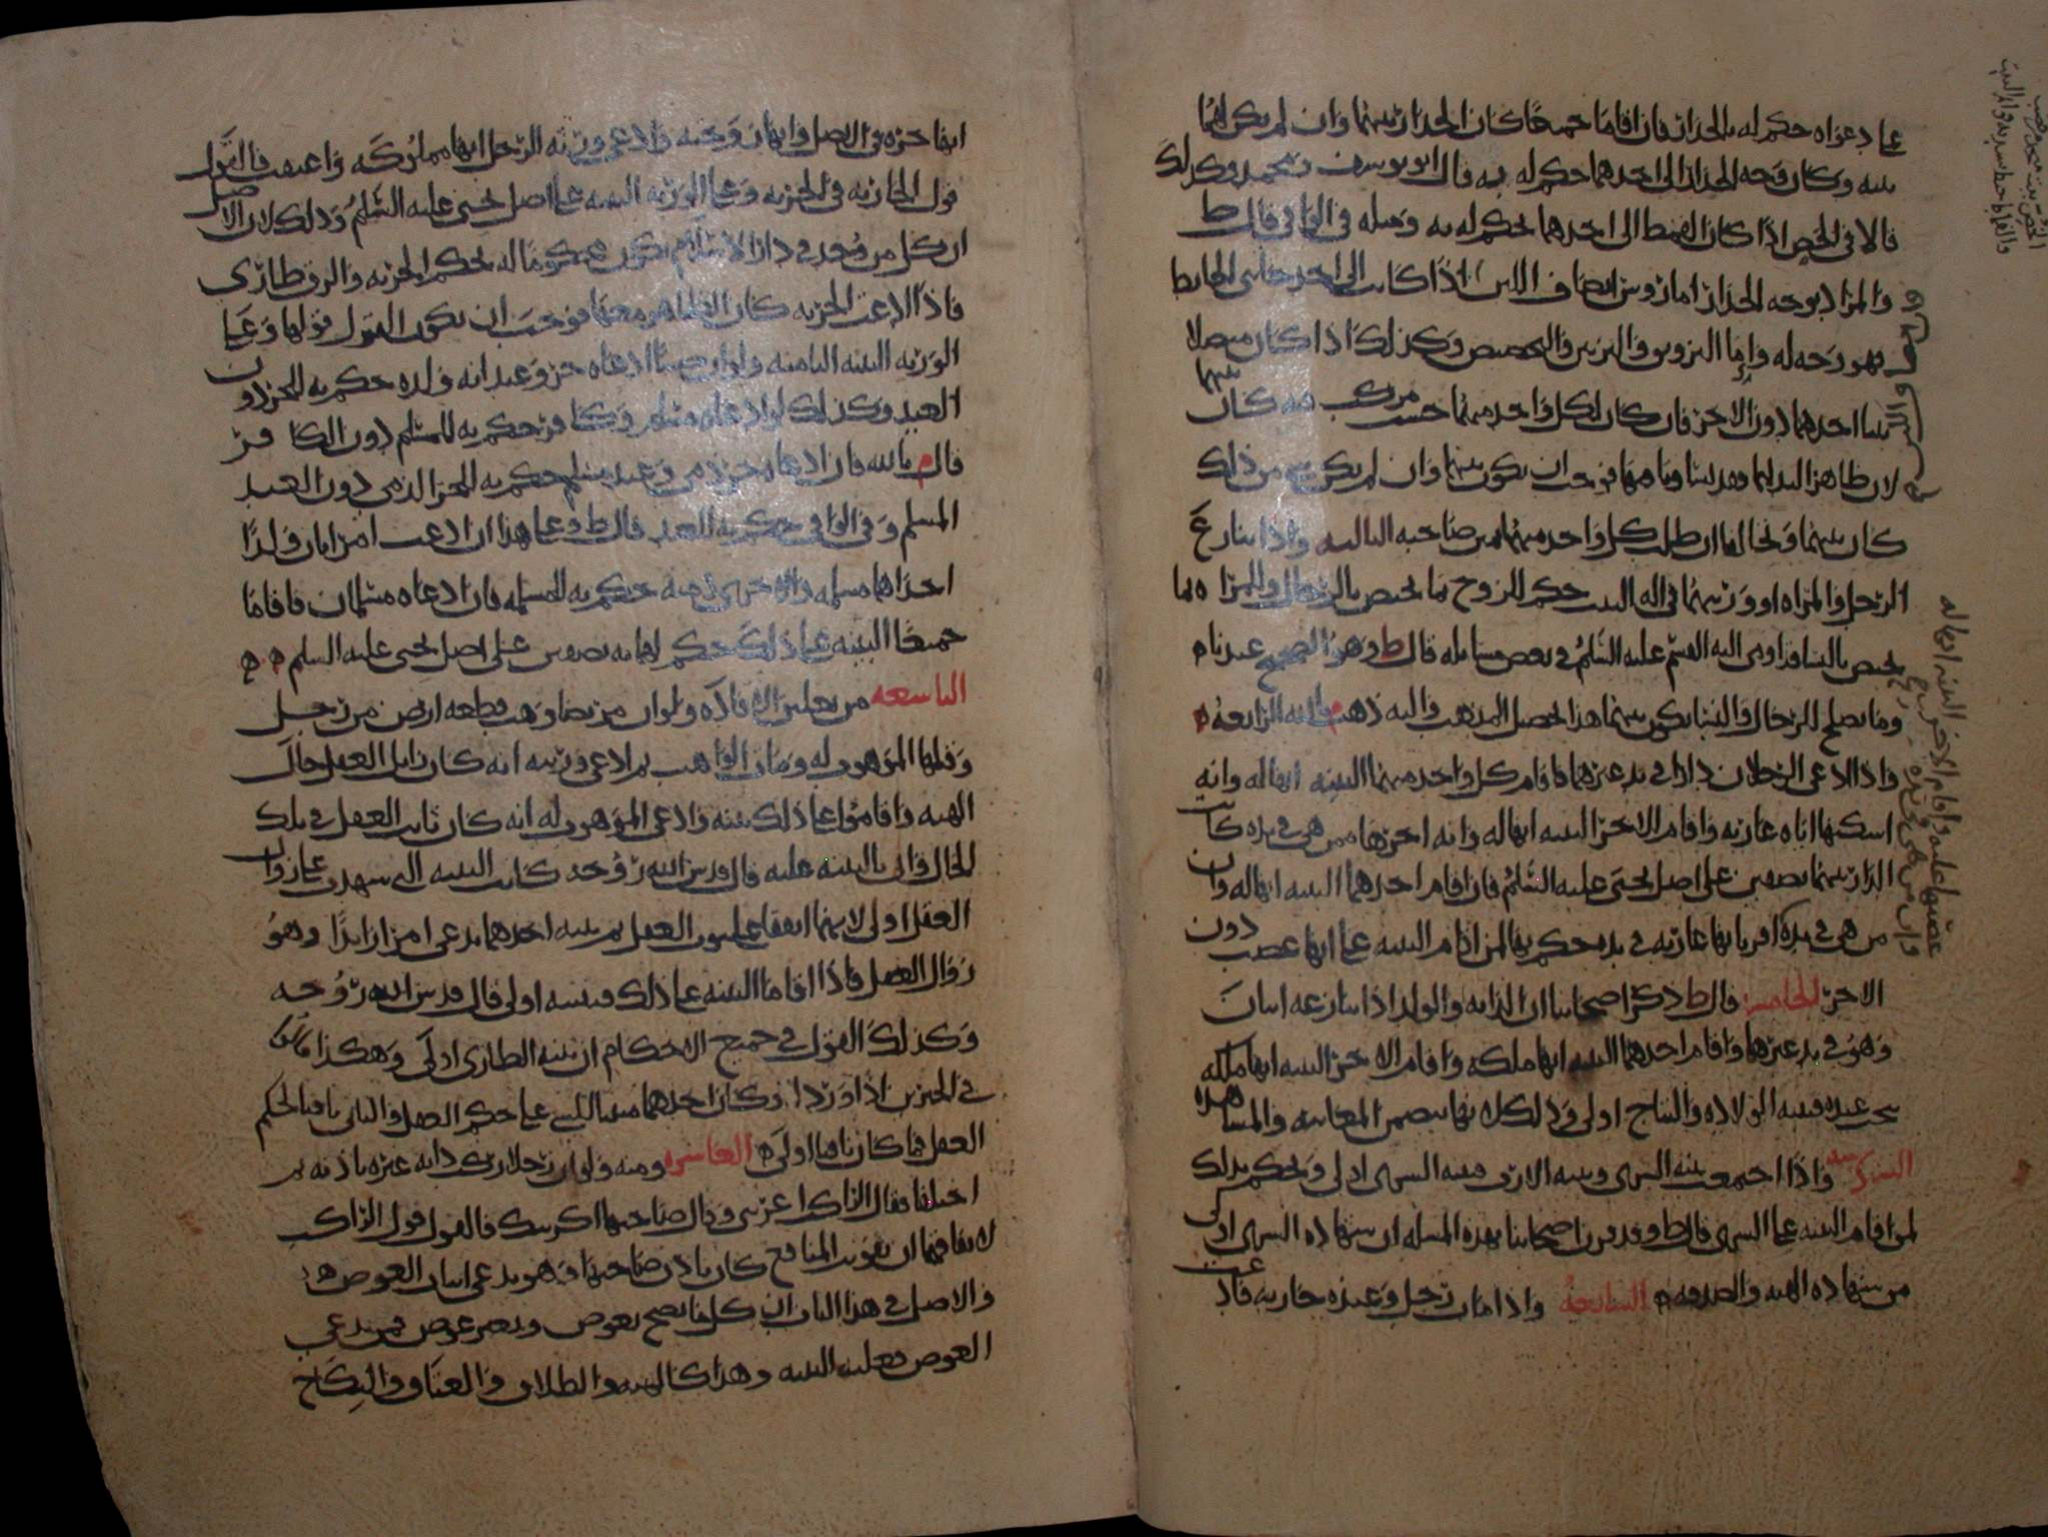 على دعواه حكم له بالجدار فان اقاما جميعًا كان الجدار بينهما وان لم يكن لهما
بينه وكان وجه الجدار الى احدهما حكم له به قال ابو يوسف ومحمد وكذلك
قالا في الخص اذا كان القمط الى احدهما يحكم له به ومثله في الوافي قال ط
والمراد بوجه الجدار اما روس انصاف اللبن اذا كانت الى احد جانبي الحايط
فهو وجه له واما التزويق والتزيين والتجصيص وكذلك اذا كان متصلا
ببنا احدهما دون الاخر فان كان لكل واحد منهما خشب مركب فيه كان بينهما
لان ظاهر اليد لهما فوجب ان يكون بينهما وان لم يكن شي من ذلك
كان بينهما وتحالفا ان طلب كل واحد منهما يمين صاحبه الثالثه واذا تنازع
الرجل والمراه او ورثتهما في اله البيت حكم للزوج بما يختص بالرجال وللمراه بما
يختص بالنسا اليه القسم عليه السلم في بعض مسايله قال ط وهو الصحيح عندنا
وما يصلح للرجال والنسا يكون بينهما هذا المذهب واليه ذهب م بالله الرابعه
واذا ادعى الرجلان دارا في يد غيرهما فاقام كل واحد منهما البينه انها له وانه
اسكنها اياه عاريه واقام الاخر البينه انها له وانه اجرها ممن هي في يده كانت
الدار بينهما نصفين على اصل يحيى عليه السلم فان اقام احدهما البينه انها له وان
من هي في يده اقر بانها عاريه في يده حكم بها لمن اقام البينه على انها غصب دون
الاخر الخامسه قال ط ذكر اصحابنا ان الدابه والولد اذا تنازعه اثنان
وهو في يد غيرهما واقام احدهما البينه انها ملكه واقام الاخر البينه انها ملكه
نتجت عنده فبينه الولاده والنتاج اولى وذلك لانها تتضمن المعاينه والمشاهده
السادسه واذا اجتمعت بينه الشرى وبينه الارث فبينه الشرى اولى ويحكم بذلك
لمن اقام البينه على الشرى قال ط وقد قرن اصحابنا بهذه المسله ان شهاده الشرى اولى
من شهاده الهبه والصدقه السابعه واذا مات رجل وعنده جاريه فادعت
انها حره في الاصل وانها زوجته وادعى ورثه الرجل انها مملوكه واعتقت فالقول
قول الجاريه في الحريه وعلى الورثه البينه على اصل يحيى عليه السلم وذلك لان الاصل
ان كل من وجد في دار الاسلام يكون محكومًا له بحكم الحريه والرق طارى
فاذا ادعت الحريه كان الظاهر معها فوجب ان يكون القول قولها وعلى
الورثه البينه الثامنه ولو ان صبيًا ادعاه حر وعبد انه ولده حكم به للحر دون
العبد وكذلك لو ادعاه مسلم وكافر حكم به للمسلم دون الكافر
قال م بالله فان ادعاه حر ذمي وعبد مسلم حكم به للحر الذمي دون العبد
المسلم وفي الوافي حكم به للعبد قال ط وعلى هذا ان ادعت امراتان ولدًا
احداهما مسلمه والاخرى ذميه حكم به للمسلمه فان ادعاه مسلمان فاقاما
جميعًا البينه على ذلك حكم لهما به نصفين على اصل يحيى عليه السلم
التاسعه من تعليق الافاده ولو ان مريضا وهب قطعه ارض من رجل
وقبلها الموهوب له ومات الواهب ثم ادعى ورثته انه كان زايل العقل حال
الهبه واقاموا على ذلك بينه وادعى الموهوب له انه كان ثابت العقل في تلك
الحال واتى بالبينه عليه قال قدس الله روحه كانت البينه التي شهدت على زوال
العقل اولى لانهما اتفقا على ثبوت العقل ثم بينه احدهما تدعي امرا زايدًا وهو
زوال العقل فاذا اقاما البينه على ذلك فبينته اولى قال قدس الله روحه
وكذلك القول في جميع الاحكام ان بينه الطارى اولى وهكذا قالوا
في الخبرين اذا وردا وكان احدهما مبقيا للشي على حكم العقل والثاني ناقلا لحكم
العقل فما كان ناقلا اولى العاشره ومنه ولو ان رجلا ركب دابه غيره باذنه ثم
اختلفا فقال الراكب اعرتني وقال صاحبها اكريتك فالقول قول الراكب
لانهما اتفقا ان تفويت المنافع كان باذن صاحبها وهو يدعي اثبات العوض
والاصل في هذا الباب ان كل ما يصح بعوض وبغير عوض فمن يدعي
العوض فعليه البينه وهذا كالهبه والطلاق والعتاق والنكاح